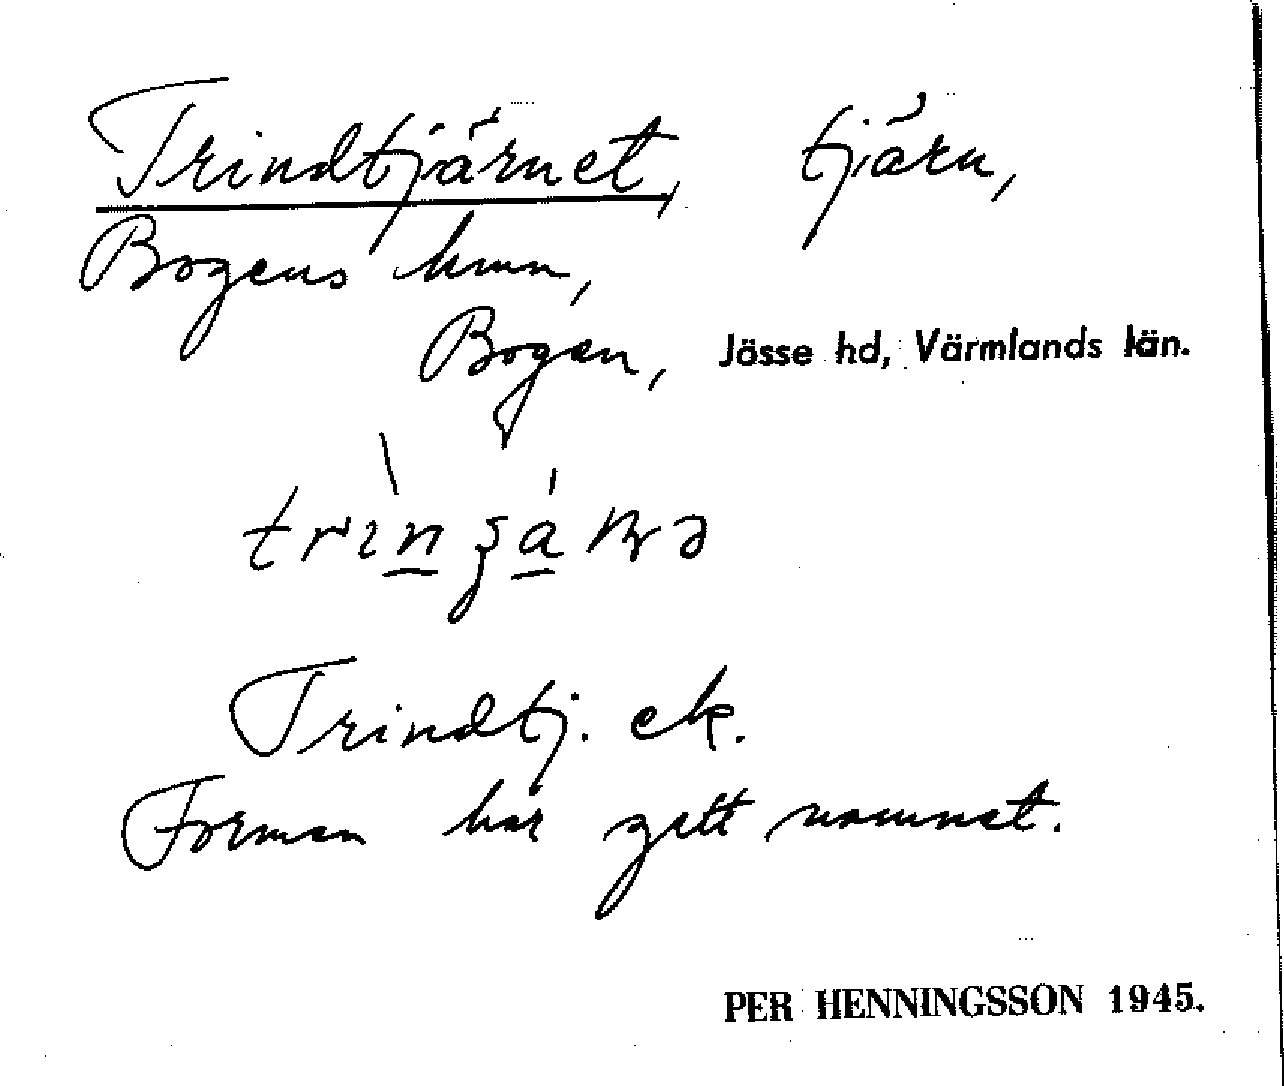 Trindtjärnet, tjärn,
Bogens kmn,
Bogen, Jössе hd, Värmlands län.
Trindtj. ek.
Formen har gett namnet.
PER HENNINGSSON 1945.